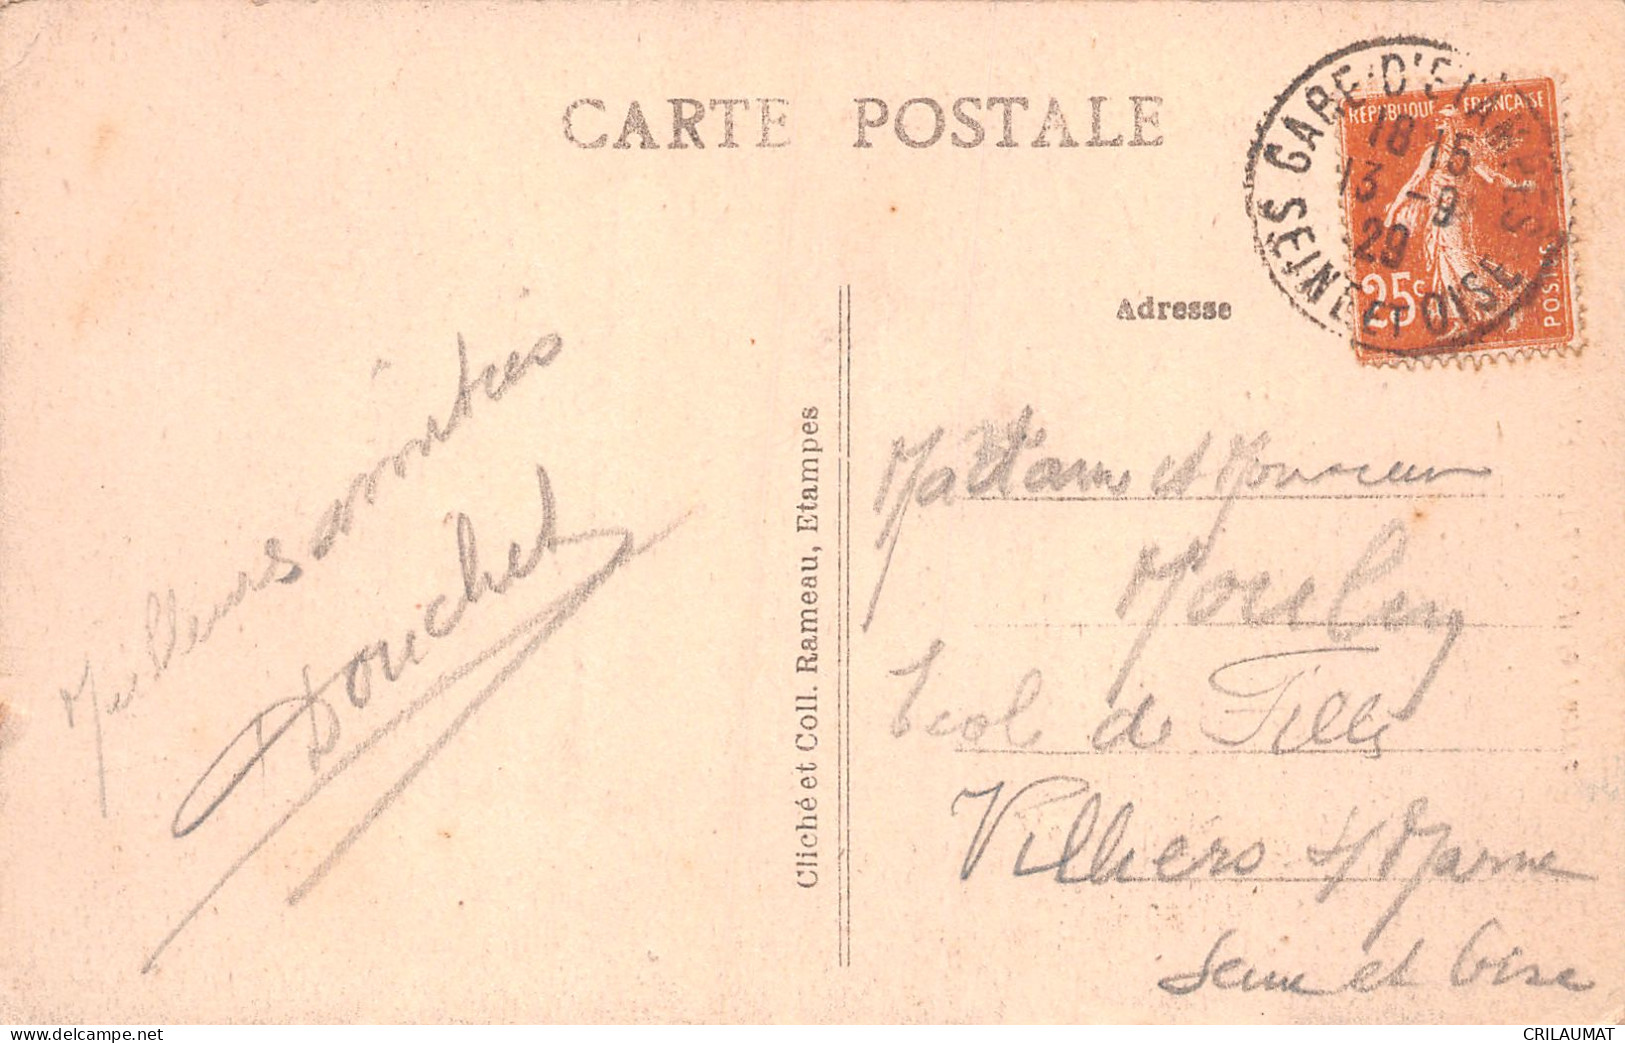 CARTE POSTALE
GARE D'ETAMPES
SEINE ET OISE
18 15
13 -9
29
REPUBLIQUE FRANCAISE
25c
POSTES
Adresse
Meilleurs amitiés
Douchet
Cliché et Coll. Rameau, Etampes
Madame et Monsieur
Ecole de Filles
Villiers s/Marne
Seine et Oise
www.delcampe.net
CRILAUMAT